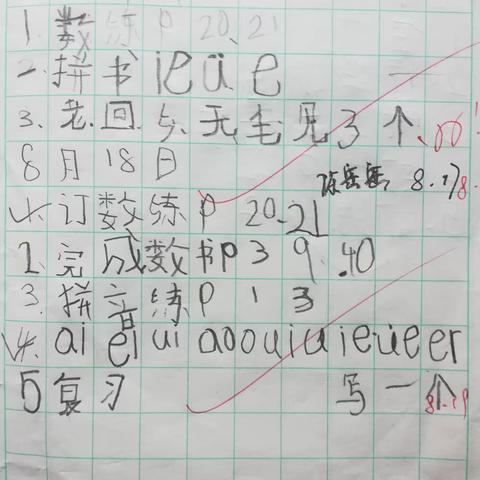 1. 数练 P 20、21
2. 拼书 ie üe
3. 老、回、乡、无、毛、见 3 个、
8月18日
8.17
4. 订数练 P 20-21
2. 完成数书P 39.40
3. 拼音练 P 13
4. ai ei ui ao ou iu ie üe er
5 复习 写一个
8.19